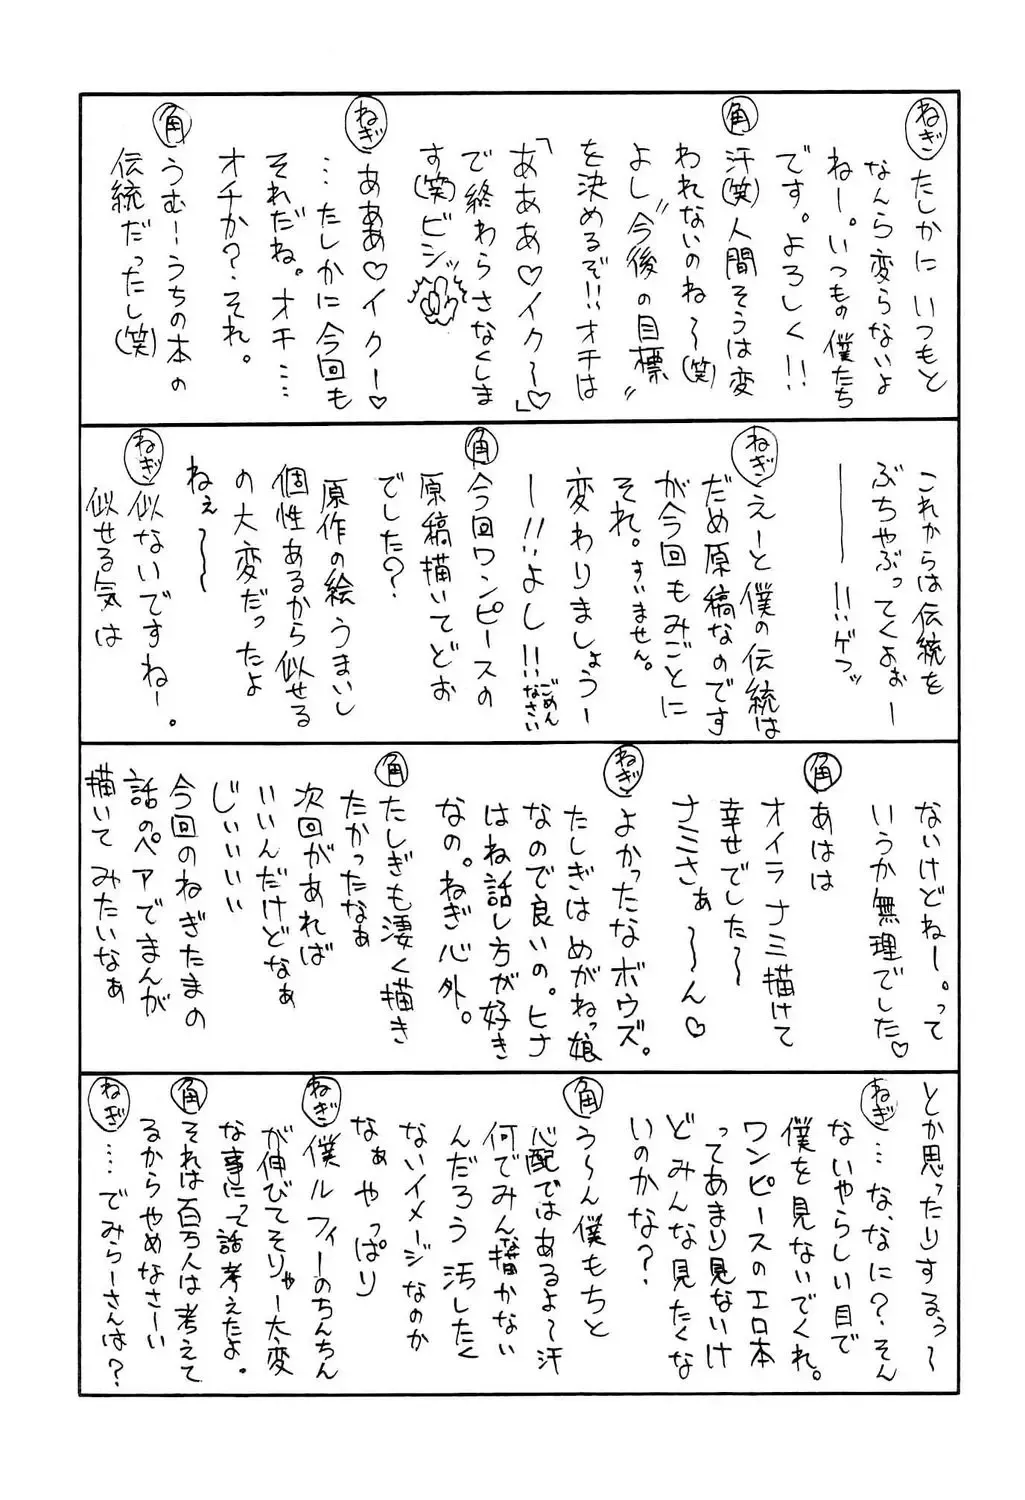 ねぎ たしかにいつもと
なんら変らないよ
ねー。いつもの僕たち
です。よろしく!!
角 汗(笑)人間そうは変
われないのね～(笑)
よし"今後の目標"
を決めるぞ!!オチは
「あああ♡イク～♡」
で終わらさなくしま
す(笑)ビシッ
ねぎ あああ♡イクー♡
…たしかに今回も
それだね。オチ…
オチか?それ。
角 うむーうちの本の
伝統だったし(笑)
これからは伝統を
ぶちやぶってくよぉー
――!!ゲフッ
ねぎ えーと僕の伝統は
だめ原稿なのです
が今回もみごとに
それ。すいません。
変わりましょうー
ー!!よし!!ごめんなさい
角 今回ワンピースの
原稿描いてどお
でした?
原作の絵うまいし
個性あるから似せる
の大変だったよ
ねぇ～～
ねぎ 似ないですねー。
似せる気は
ないけどねー。って
いうか無理でした♡
角 あはは
オイラナミ描けて
幸せでした～
ナミさぁ～～ん♡
ねぎ よかったなボウズ。
たしぎはめがねっ娘
なので良いの。ヒナ
はね話し方が好き
なの。ねぎ心外。
角 たしぎも凄く描き
たかったなぁ
次回があれば
いいんだけどなぁ
じぃぃぃぃ
今回のねぎたまの
話のペアでまんが
描いてみたいなぁ
とか思ったりするぅ～
ねぎ …な、なに?そん
ないやらしい目で
僕を見ないでくれ。
ワンピースのエロ本
ってあまり見ないけ
どみんな見たくな
いのかな?
角 う～ん僕もちと
心配ではあるよ～汗
何でみんな描かない
んだろう汚したく
ないイメージなのか
なぁやっぱり
ねぎ 僕ルフィーのちんちん
が伸びてそりゃー大変
な事にって話考えたよ。
角 それは百万人は考えて
るからやめなさーい
ねぎ ……でみらーさんは?